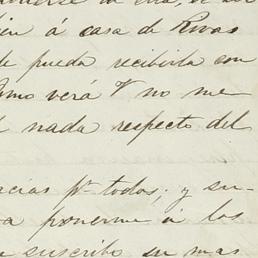 bien á casa de Rivas
de pueda recibirla con
como verá V no me
nada respecto del
acias pr. todos; y su-
a ponerme á los
suscribo su mas